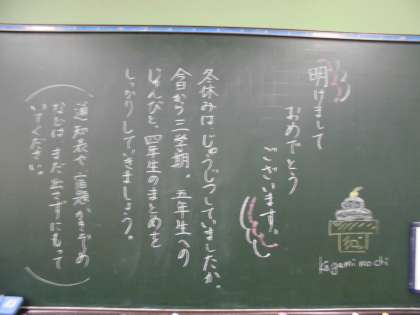 明けまして
おめでとう
ございます。
冬休みは、じゅうじつしていましたか。
今日から三学期。五年生への
じゅんびと、四年生のまとめを
しっかりしていきましょう。
(通知表や宿題、かきぞめ
などは、まだ出さずにもって
いてください。)
Kagami mochi